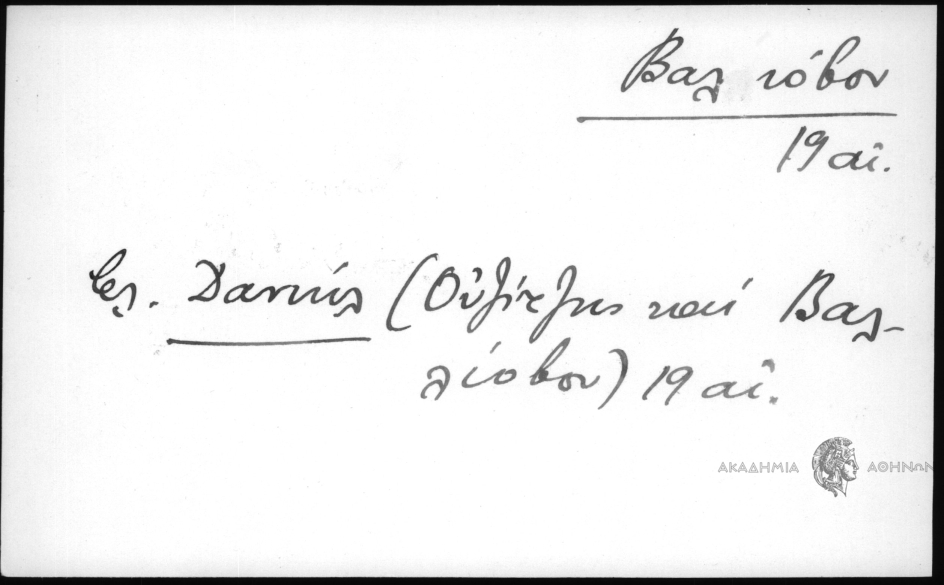 Βαλιόβου
19 αἰ.
βλ. Δανιήλ (Οὐζίτζης καί Βαλ-
λιόβου) 19 αἰ.
ΑΚΑΔΗΜΙΑ ΑΘΗΝΩΝ